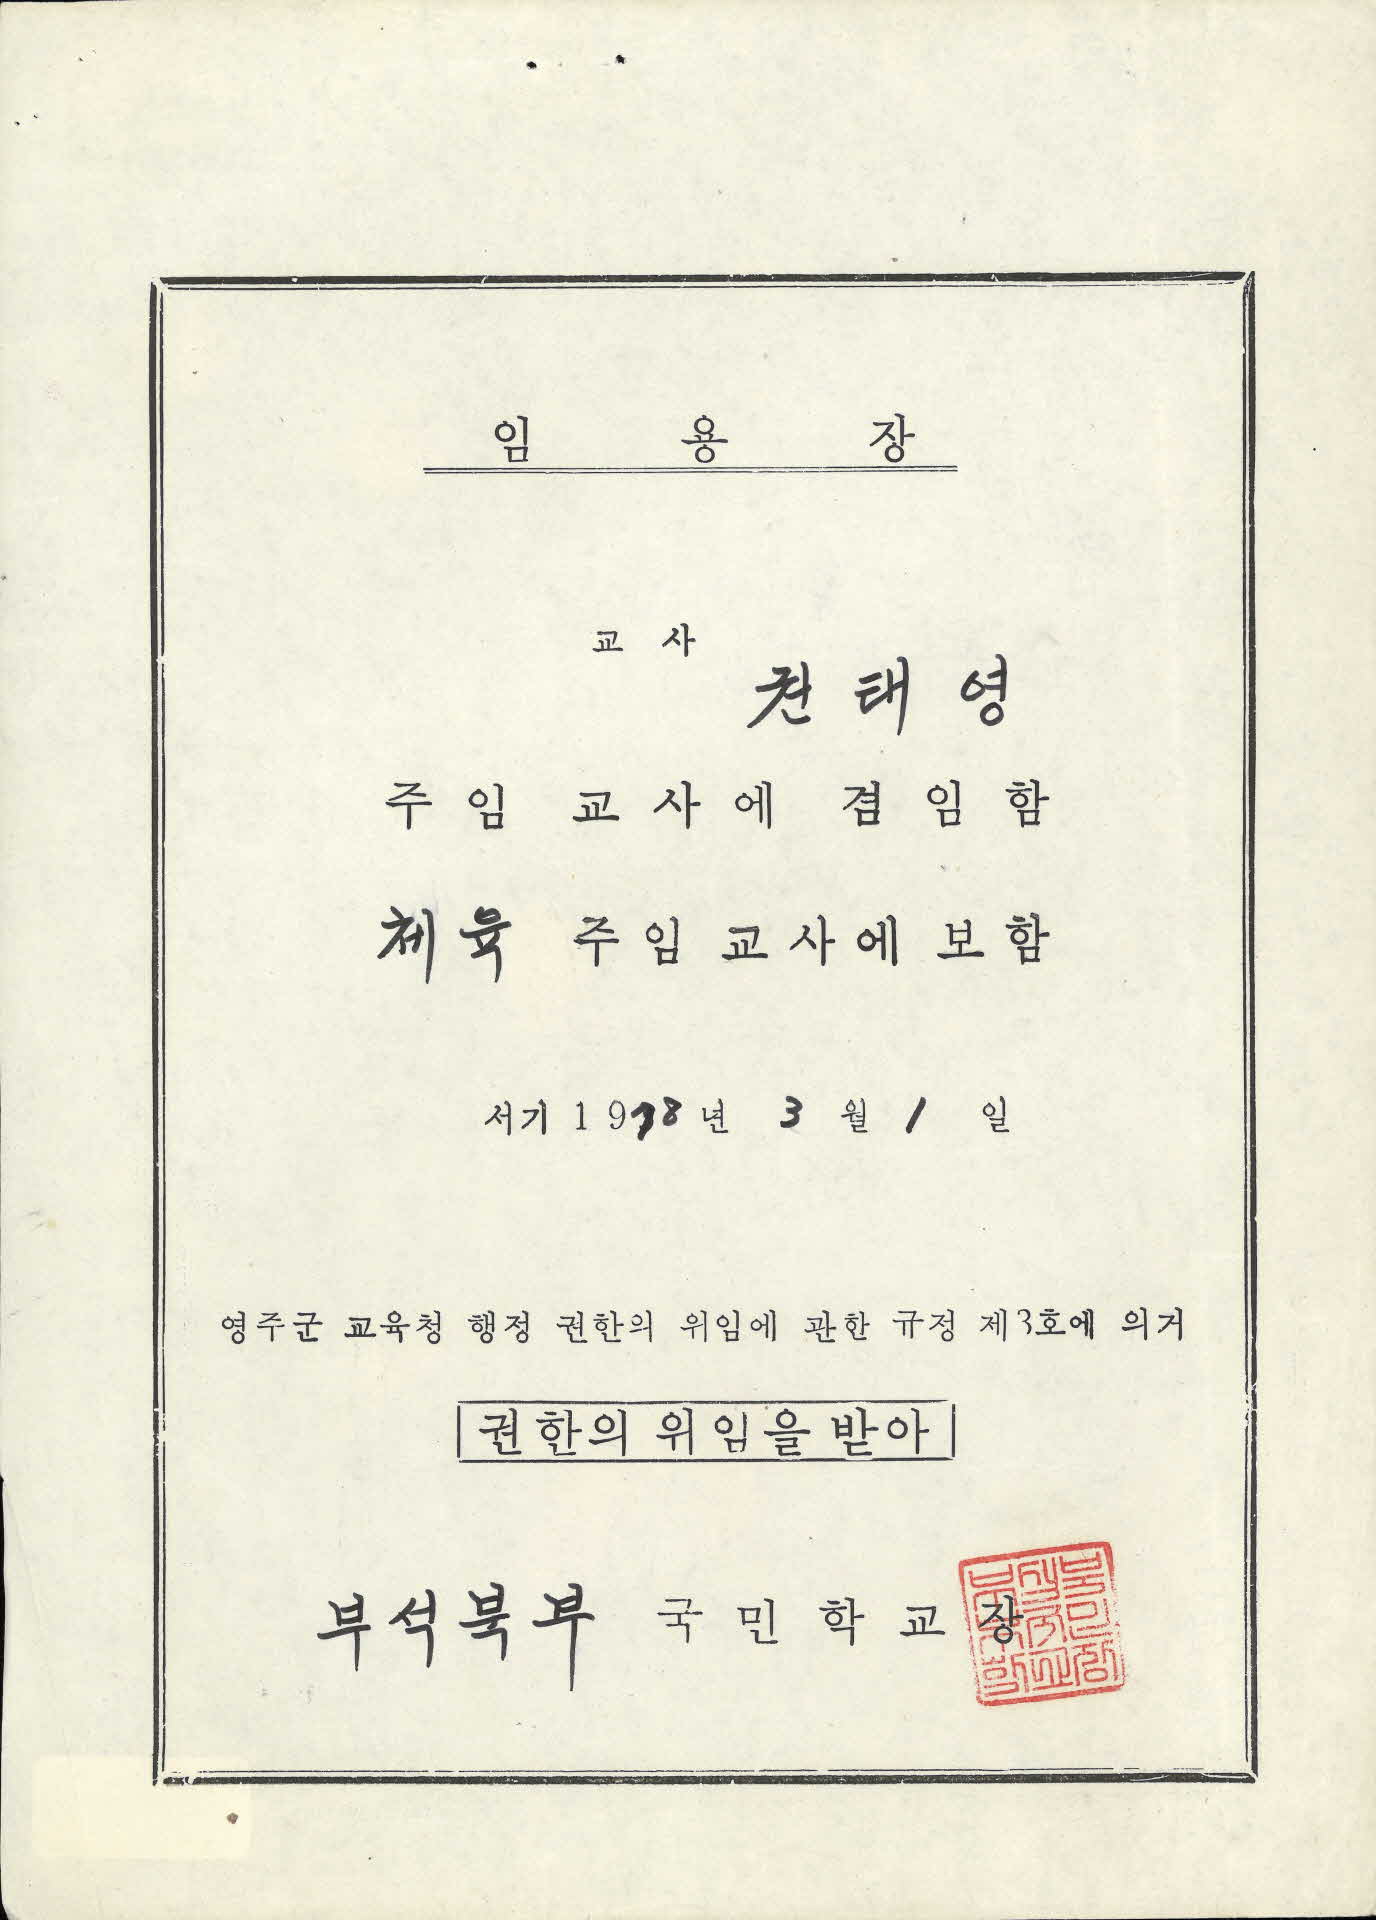 임 용 장
교 사
권 태 영
주 임 교 사 에 겸 임 함
체 육 주 임 교 사 에 보 함
서기 1978년 3 월 1 일
영주군 교육청 행정 권한의 위임에 관한 규정 제3호에 의거
권한의 위임을 받아
부석북부 국 민 학 교 장